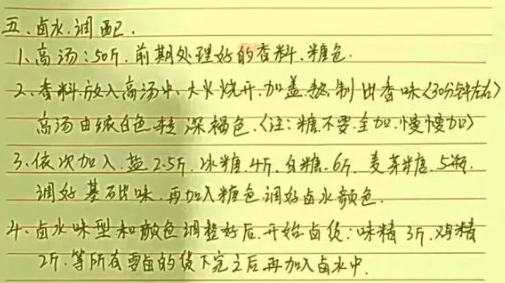 五、卤水调配.
1、高汤:50斤.前期处理好的香料.糖色.
2、香料放入高汤中.大火烧开.加盖熬制出香味(30分钟左右)
高汤由微白色转深褐色.(注:糖不要全加.慢慢加)
3、依次加入.盐2.5斤.冰糖.4斤.白糖.6斤.麦芽糖.5瓶.
调好基础味.再加入糖色调好卤水颜色.
4、卤水味型和颜色调整好后.开始卤货:味精3斤.鸡精
2斤.等所有要卤的货下完之后再加入卤水中.